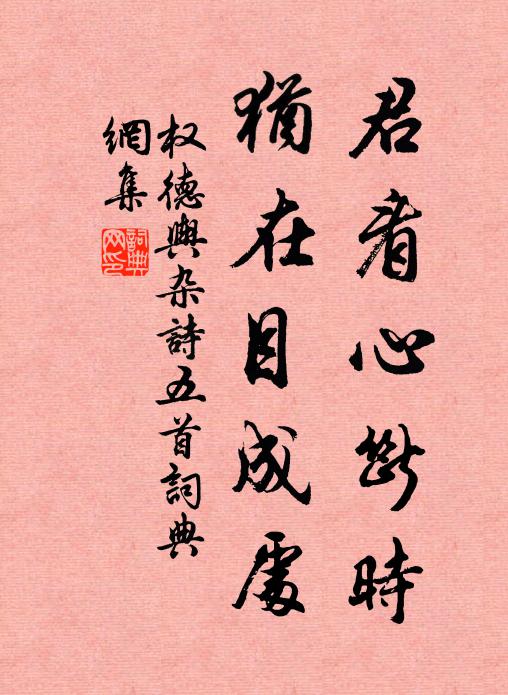 君看心斷時
猶在目成處
权德輿杂詩五首詞典
網集
詞典網印